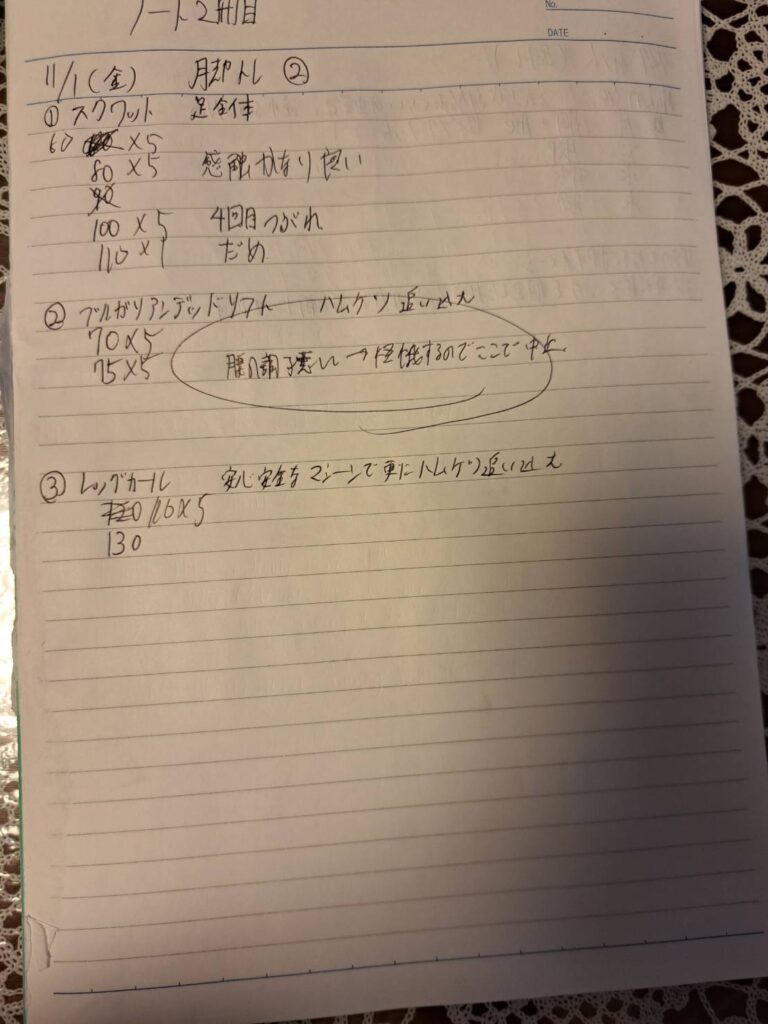 ノート2冊目
No.
DATE
11/1(金) 脚トレ ②
① スクワット 足全体
60 ×5
80 ×5 感触かなり良い
90
100×5 4回目つぶれ
110×1 だめ
② ブルガリアンデッドリフト ハムケツ追い込え
70×5
75×5 腰の調子悪い→怪我するのでここで中止
③ レッグカール 安心安全なマシーンで更にハムケツ追い込え
116×5
130